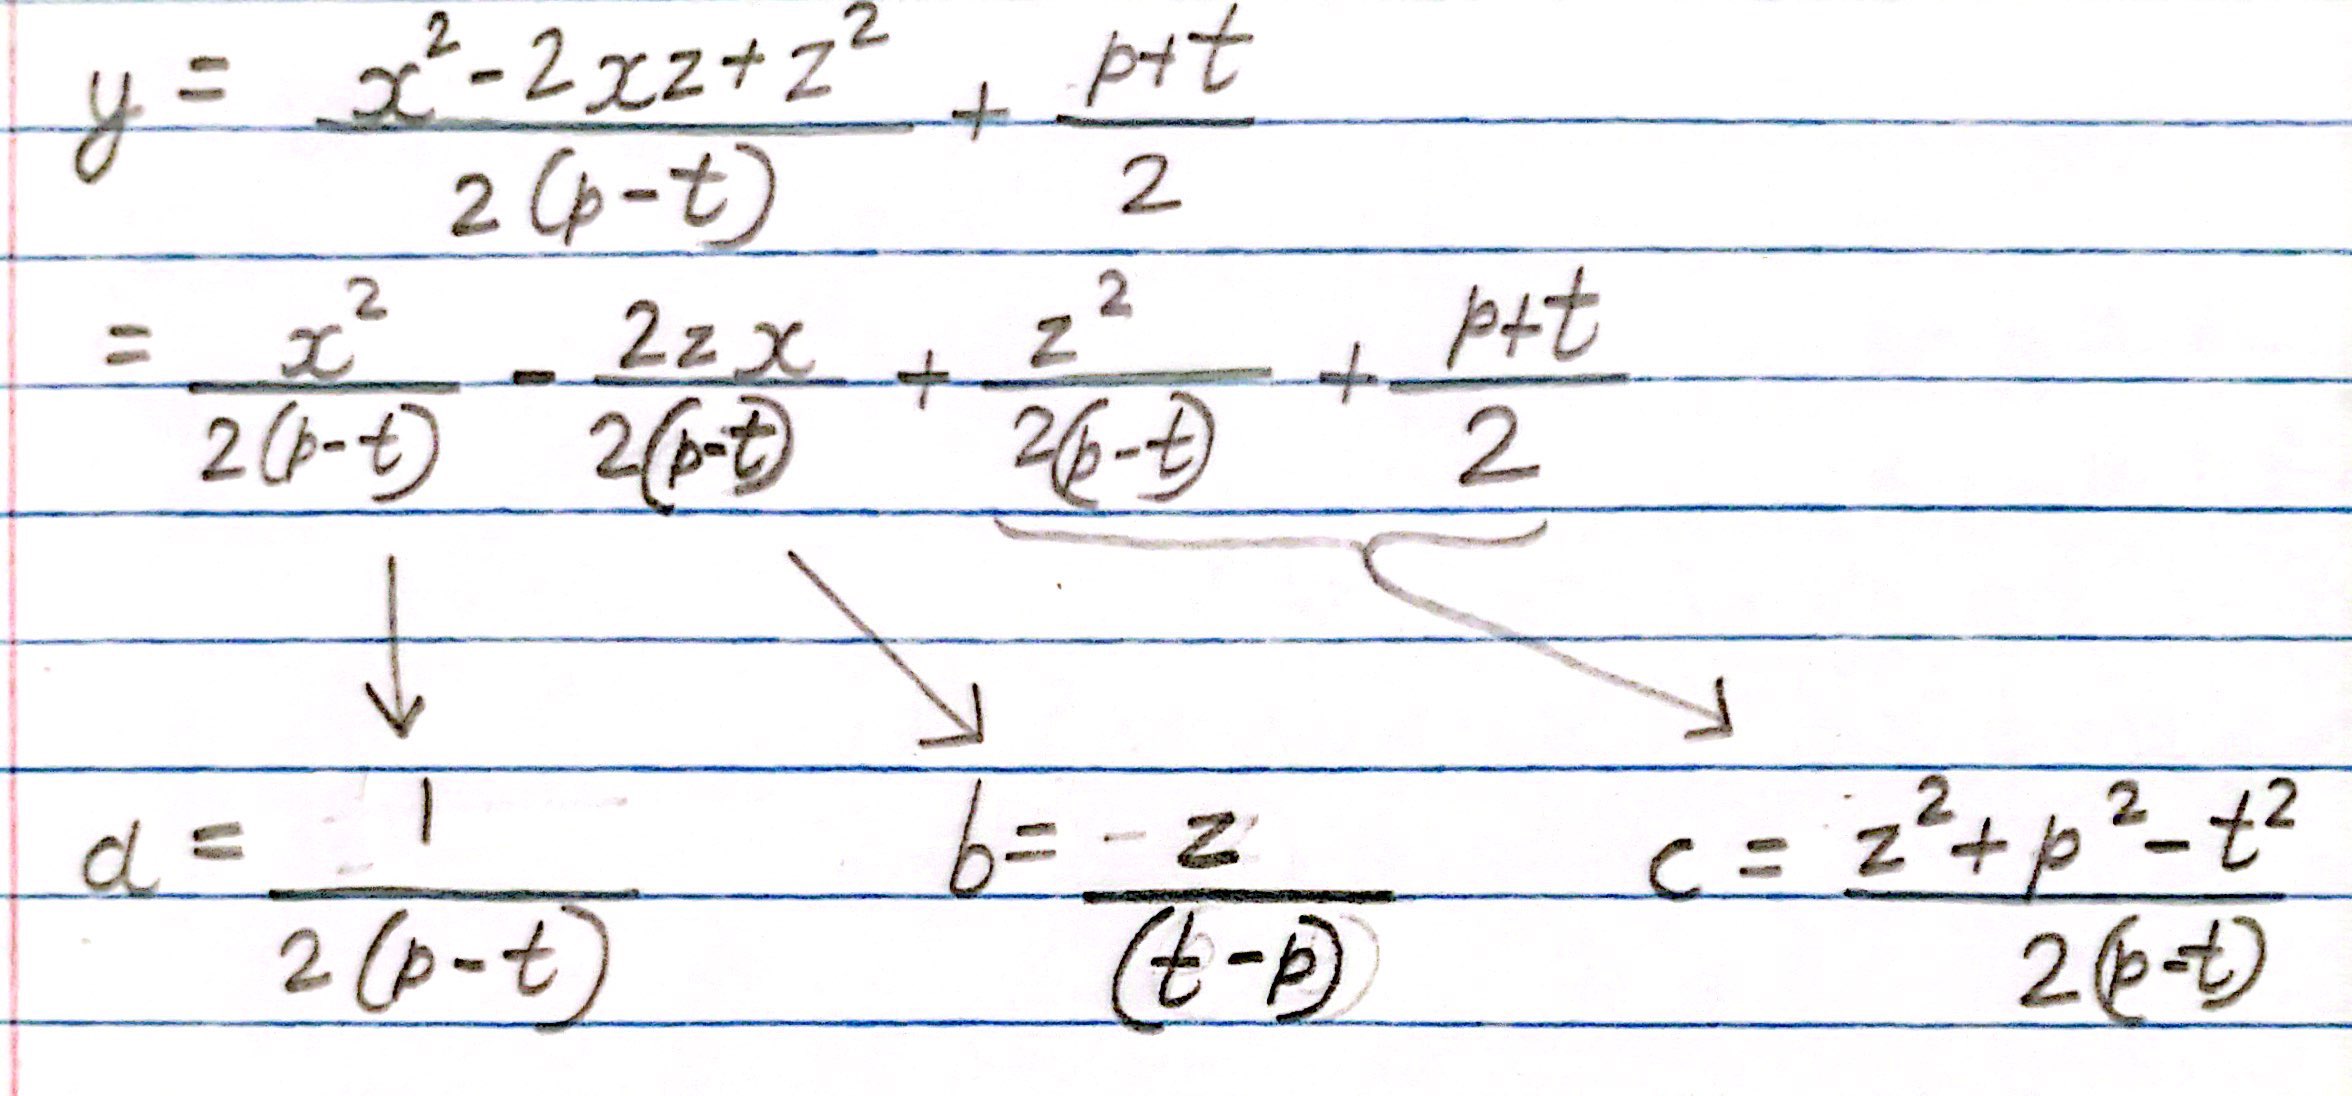 y = \frac{x^2 - 2xz + z^2}{2(p-t)} + \frac{p+t}{2}
= \frac{x^2}{2(p-t)} - \frac{2zx}{2(p-t)} + \frac{z^2}{2(p-t)} + \frac{p+t}{2}
a = \frac{1}{2(p-t)} b = \frac{z}{(t-p)} c = \frac{z^2 + p^2 - t^2}{2(p-t)}